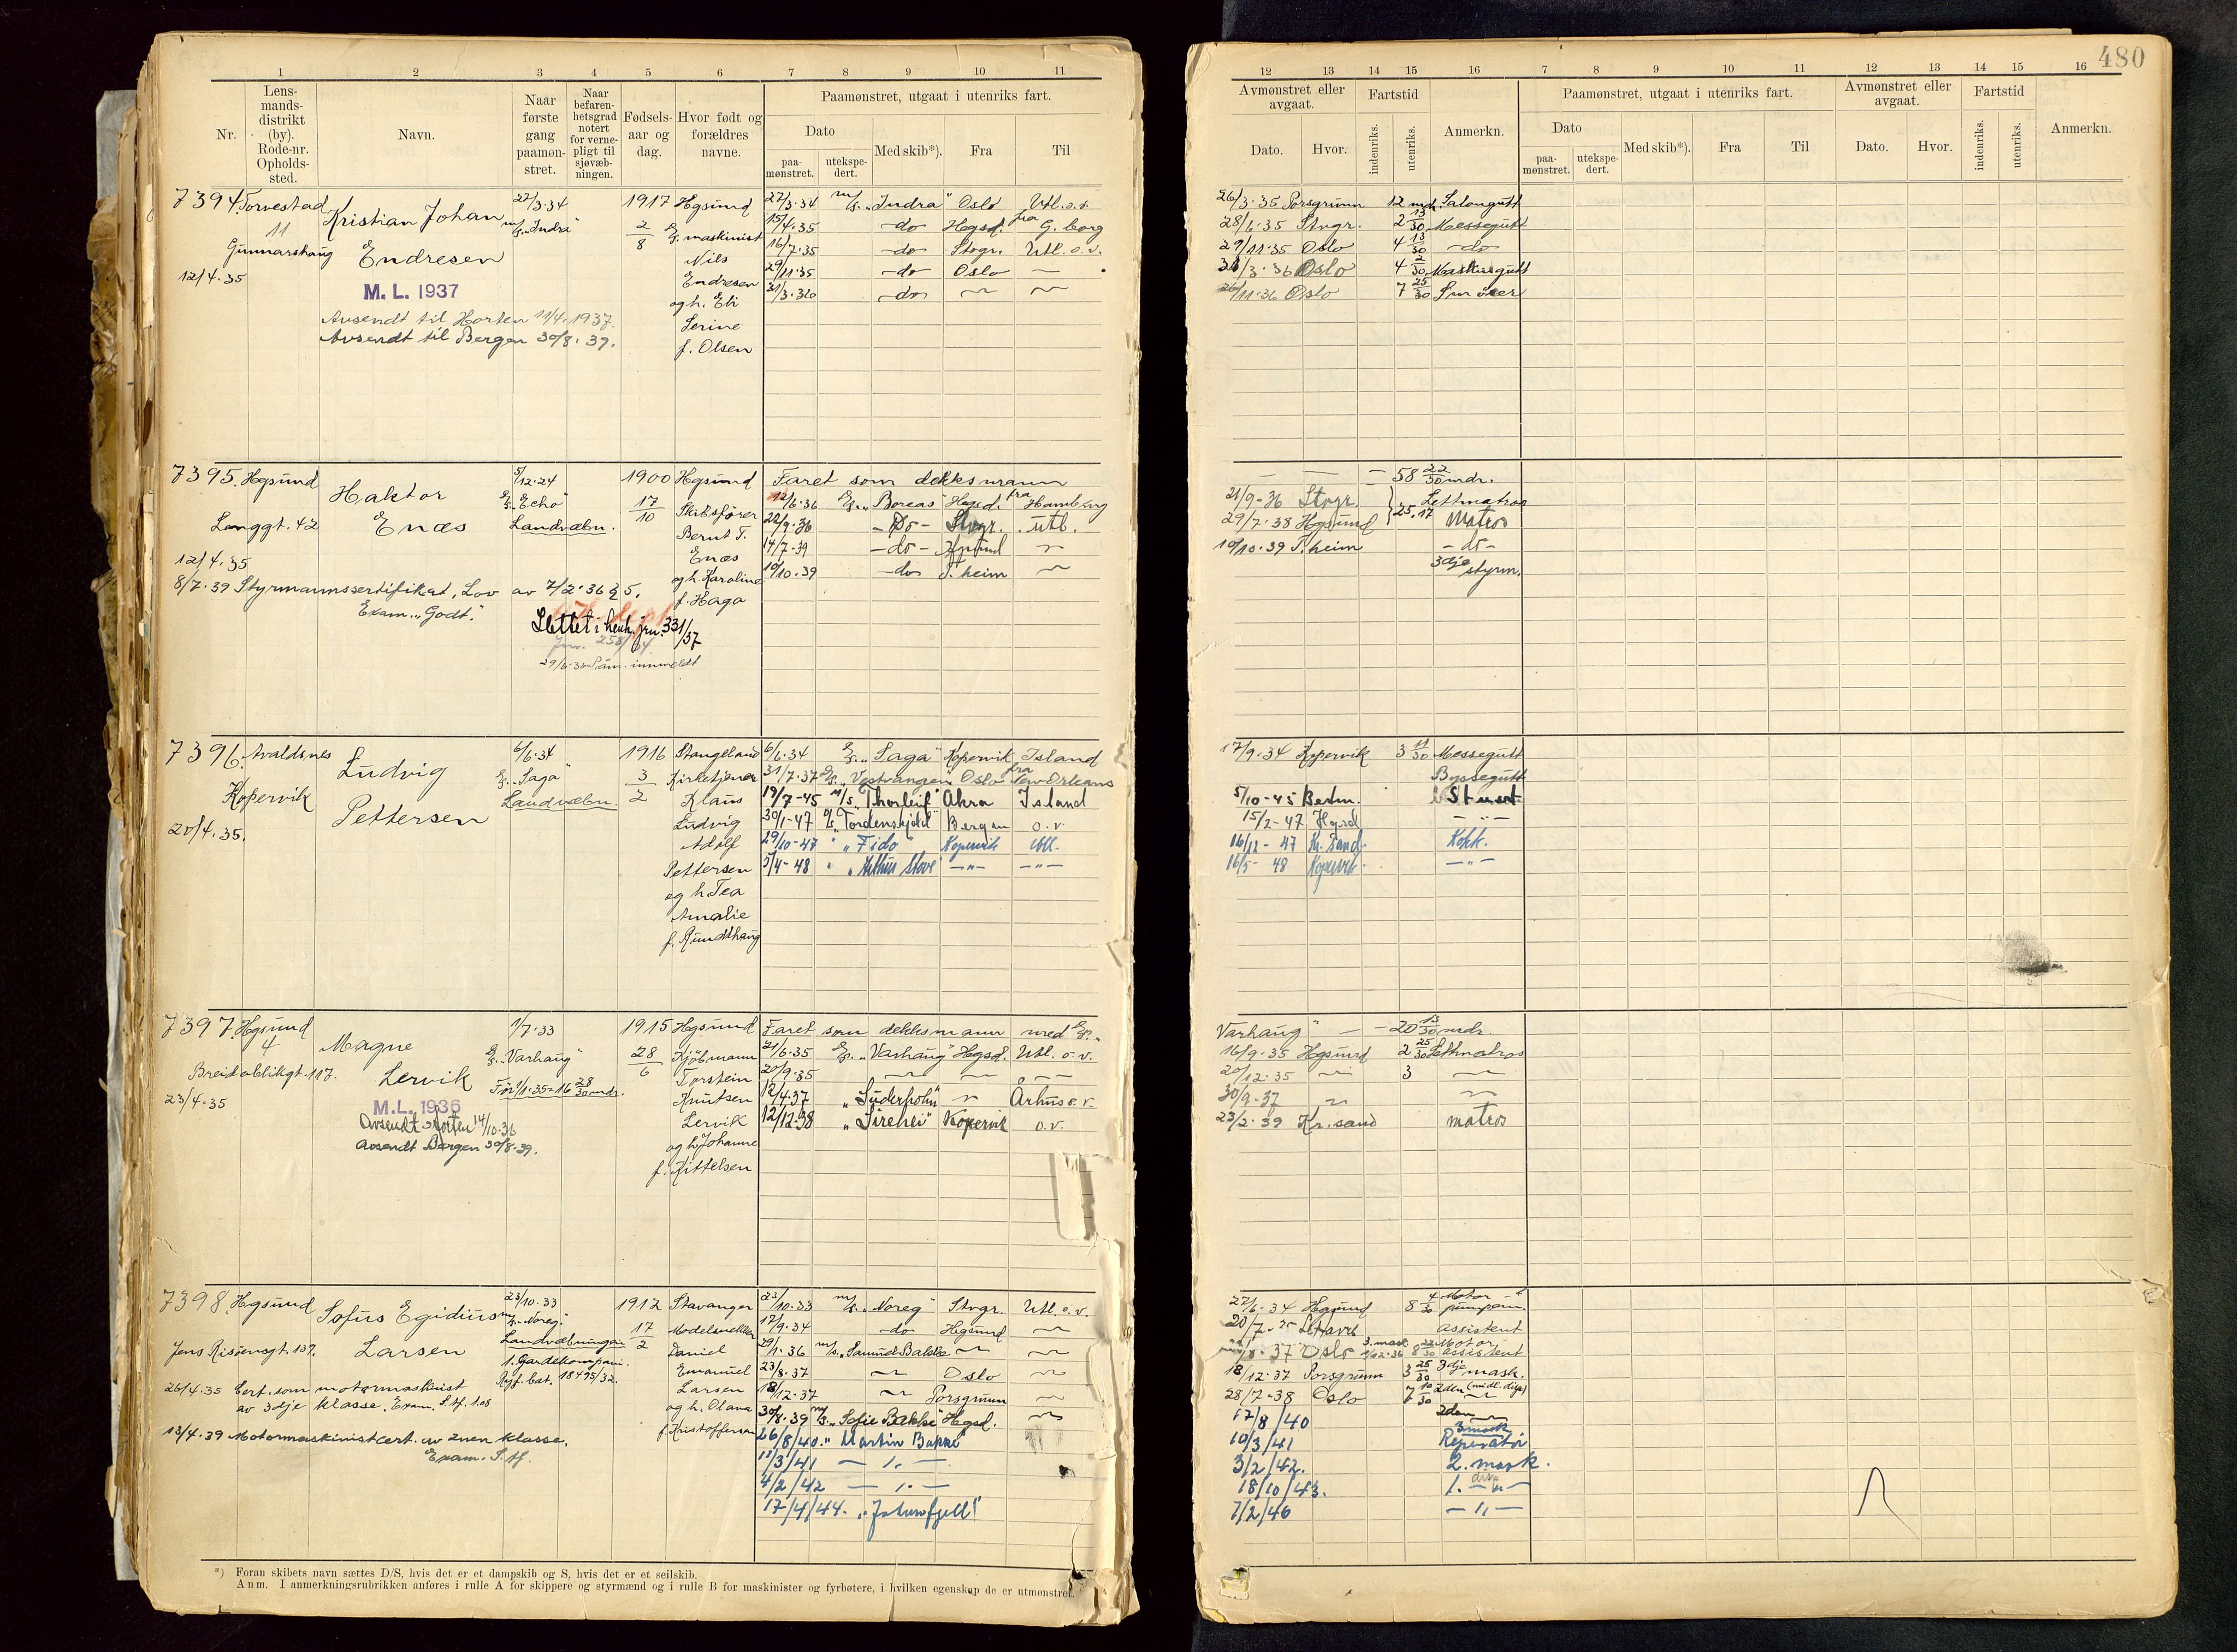 480
1 2 3 4 5 6 7 8 9 10 11
Nr.
Lens-
mands-
distrikt
(by).
Rode-nr.
Opholds-
sted.
Navn.
Naar
første
gang
paamøn-
stret.
Naar
befaren-
hetsgrad
notert
for verne-
pligt til
sjøvæb-
ningen.
Fødsels-
aar og
dag.
Hvor født og
forældres
navne.
Paamønstret, utgaat i utenriks fart.
Dato
paa-
mønstret.
utekspe-
dert.
Med skib*).
Fra
Til
12 13 14 15 16 7 8 9 10 11 12 13 14 15 16
Avmønstret eller
avgaat.
Dato. Hvor.
Fartstid
indenriks.
utenriks.
Anmerkn.
Paamønstret, utgaat i utenriks fart.
Dato
paa-
mønstret.
utekspe-
dert.
Med skib*).
Fra
Til
Avmønstret eller
avgaat.
Dato. Hvor.
Fartstid
indenriks.
utenriks.
Anmerkn.
7394. Torvestad
11
Gunnarshaug
12/4.35
Kristian Johan
Endresen
M. L. 1937
Avsendt til Horten 11/4.1937.
Avsendt til Bergen 30/8.39.
22/3.34
m/s. „Indra"
1917
2/8
Hgsund
maskinist
Nils
Endresen
og h. Eli
Serine
f. Olsen
22/3.34 m/s. „Indra" Oslo Utl. o.v.
15/4.35 -do- Hgsd. fra G.borg
16/7.35 -do- Stvgr. Utl. o.v.
29/11.35 -do- Oslo —
31/3.36 -do-
26/3.35 Porsgrunn 12 md. Salongutt
28/6.35 Stvgr. 2 13/30 Messegutt
29/11.35 Oslo 4 13/30 -do-
/3.36 Oslo 4 2/30 Maskingutt
/11.36 Oslo 7 25/30 Smører
7395. Hgsund
Langgt. 42
12/4.35
Haktor
Enæs
5/12.24
D/S. „Echo"
Landvæbn.
1900
17/10
Hgsund
Skibsfører
Bernt T.
Enæs
og h. Karoline
f. Haga
8/7.39 Styrmannssertifikat, Lov av 7/2.36 § 5.
Exam. „Godt."
Slettet i henh. jnr. 331/57
29/6.36 Påm. innmeldt
Faret som dekksmann
12/6.36 D/S. „Boreas" Hgsd. fra Hamburg
22/9.36 -Do- Stvgr. utl.
14/7-39 -do- Hgsund
10/10.39 -do- T.heim
— — — 58 22/30 mdr.
21/9-36 Stvgr Lettmatros
29/7.38 Hgsund 25.17 Matros
10/10.39 T.heim -do-
3dje styrm.
7396. Avaldsnes
Kopervik
20/4.35.
Ludvig
Pettersen
6/6.34
D/S. „Saga"
Landvæbn.
1916
3/2
Stangeland
Kirketjener
Klaus
Ludvig
Adolf
Pettersen
og h. Tea
Amalie
f. Rundhaug
6/6.34 D/S. „Saga" Kopervik Island
31/7.37 D/S. „Vestvangen" Oslo fra New Orleans
19/7-45 M/S. „Thorleif" Åkra Island
30/1-47 „Tordenskjold" Bergen o.v.
29/10-47 „Fido" Kopervik Utl.
5/4-48 „Arthur Stove" —„— —„—
17/9.34 Kopervik 3 11/30 Messegutt
Byssegutt
5/10-45 Bestm. Stuert
15/2-47 Hgsd —„—
16/12-47 Kr. Sand. Kokk.
16/5-48 Kopervik —„—
7397. Hgsund
4
Breidablikgt. 117.
23/4.35
Magne
Lervik
M. L. 1936
Avsendt Horten 14/10.36
Avsendt Bergen 30/8.39.
1/7.33
D/S. „Varhaug"
Før 1/1.35 = 16 28/30 mdr.
1915
28/6
Hgsund
Kjøbmann
Torstein
Knutsen
Lervik
og h. Johanne
f. Kittelsen
Faret som dekksmann med D/S. „
21/6.35 D/S. „Varhaug" Hgsd. Utl. o.v.
20/9.35
12/4.37 „Süderholm" Århus o.v.
12/12.38 „Sirehei" Kopervik o.v.
Varhaug" — — 20 13/30 mdr.
16/9.35 Hgsund 2 25/30 Lettmatros
20/12.35 3
30/9-37
23/2.39 Kr.sand matros
7398. Hgsund
Jens Risøensgt. 137.
Sofus Egidius
Larsen
23/10.33
m/s. „Noreg"
Landvæbningen
1. Gardekompani.
Ref. bat. 18495/32.
1912
17/2
Stavanger
Modelsnekker
Daniel
Emanuel
Larsen
og h. Olava
f. Kristoffersen
26/4.35 Cert. som motormaskinist
av 3dje klasse. Exam. S.M. 1.08
13/4.39 Motormaskinistcert. av 2nen klasse.
Exam. S.M.
23/10.33 m/s. „Noreg" Stvgr. Utl. o.v.
17/9.34 -do- Hgsund
29/1.36 m/s. „Samuel Bakke"
23/8.37 Oslo
18/12.37 Porsgrunn
30/8.39 m/s. „Sofie Bakke" Hgsd.
26/8/40. „ Martin Bakke
11/3/41 — „ —
4/2/42 — „ —
17/4/44. „Jotunfjell"
22/6.34 Hgsund 8 4/30 Motor- pumpm.
20/7-35 Le Havre Assistent
37 Oslo 3. mask 1/12.36 8 Motor assistent
18/12.37 Porsgrunn 3 25/30 3dje mask.
28/7-38 Oslo 7 10/30 2den (midl. disp.)
17/8/40 2den
10/3/41 3 mask Reperatør
3/2/42. 2. mask.
18/10/43. 1. —„—
7/2/46 —„—
*) Foran skibets navn sættes D/S, hvis det er et dampskib og S, hvis det er et seilskib.
Anm. I anmerkningsrubrikken anføres i rulle A for skippere og styrmænd og i rulle B for maskinister og fyrbøtere, i hvilken egenskap de er utmønstret.